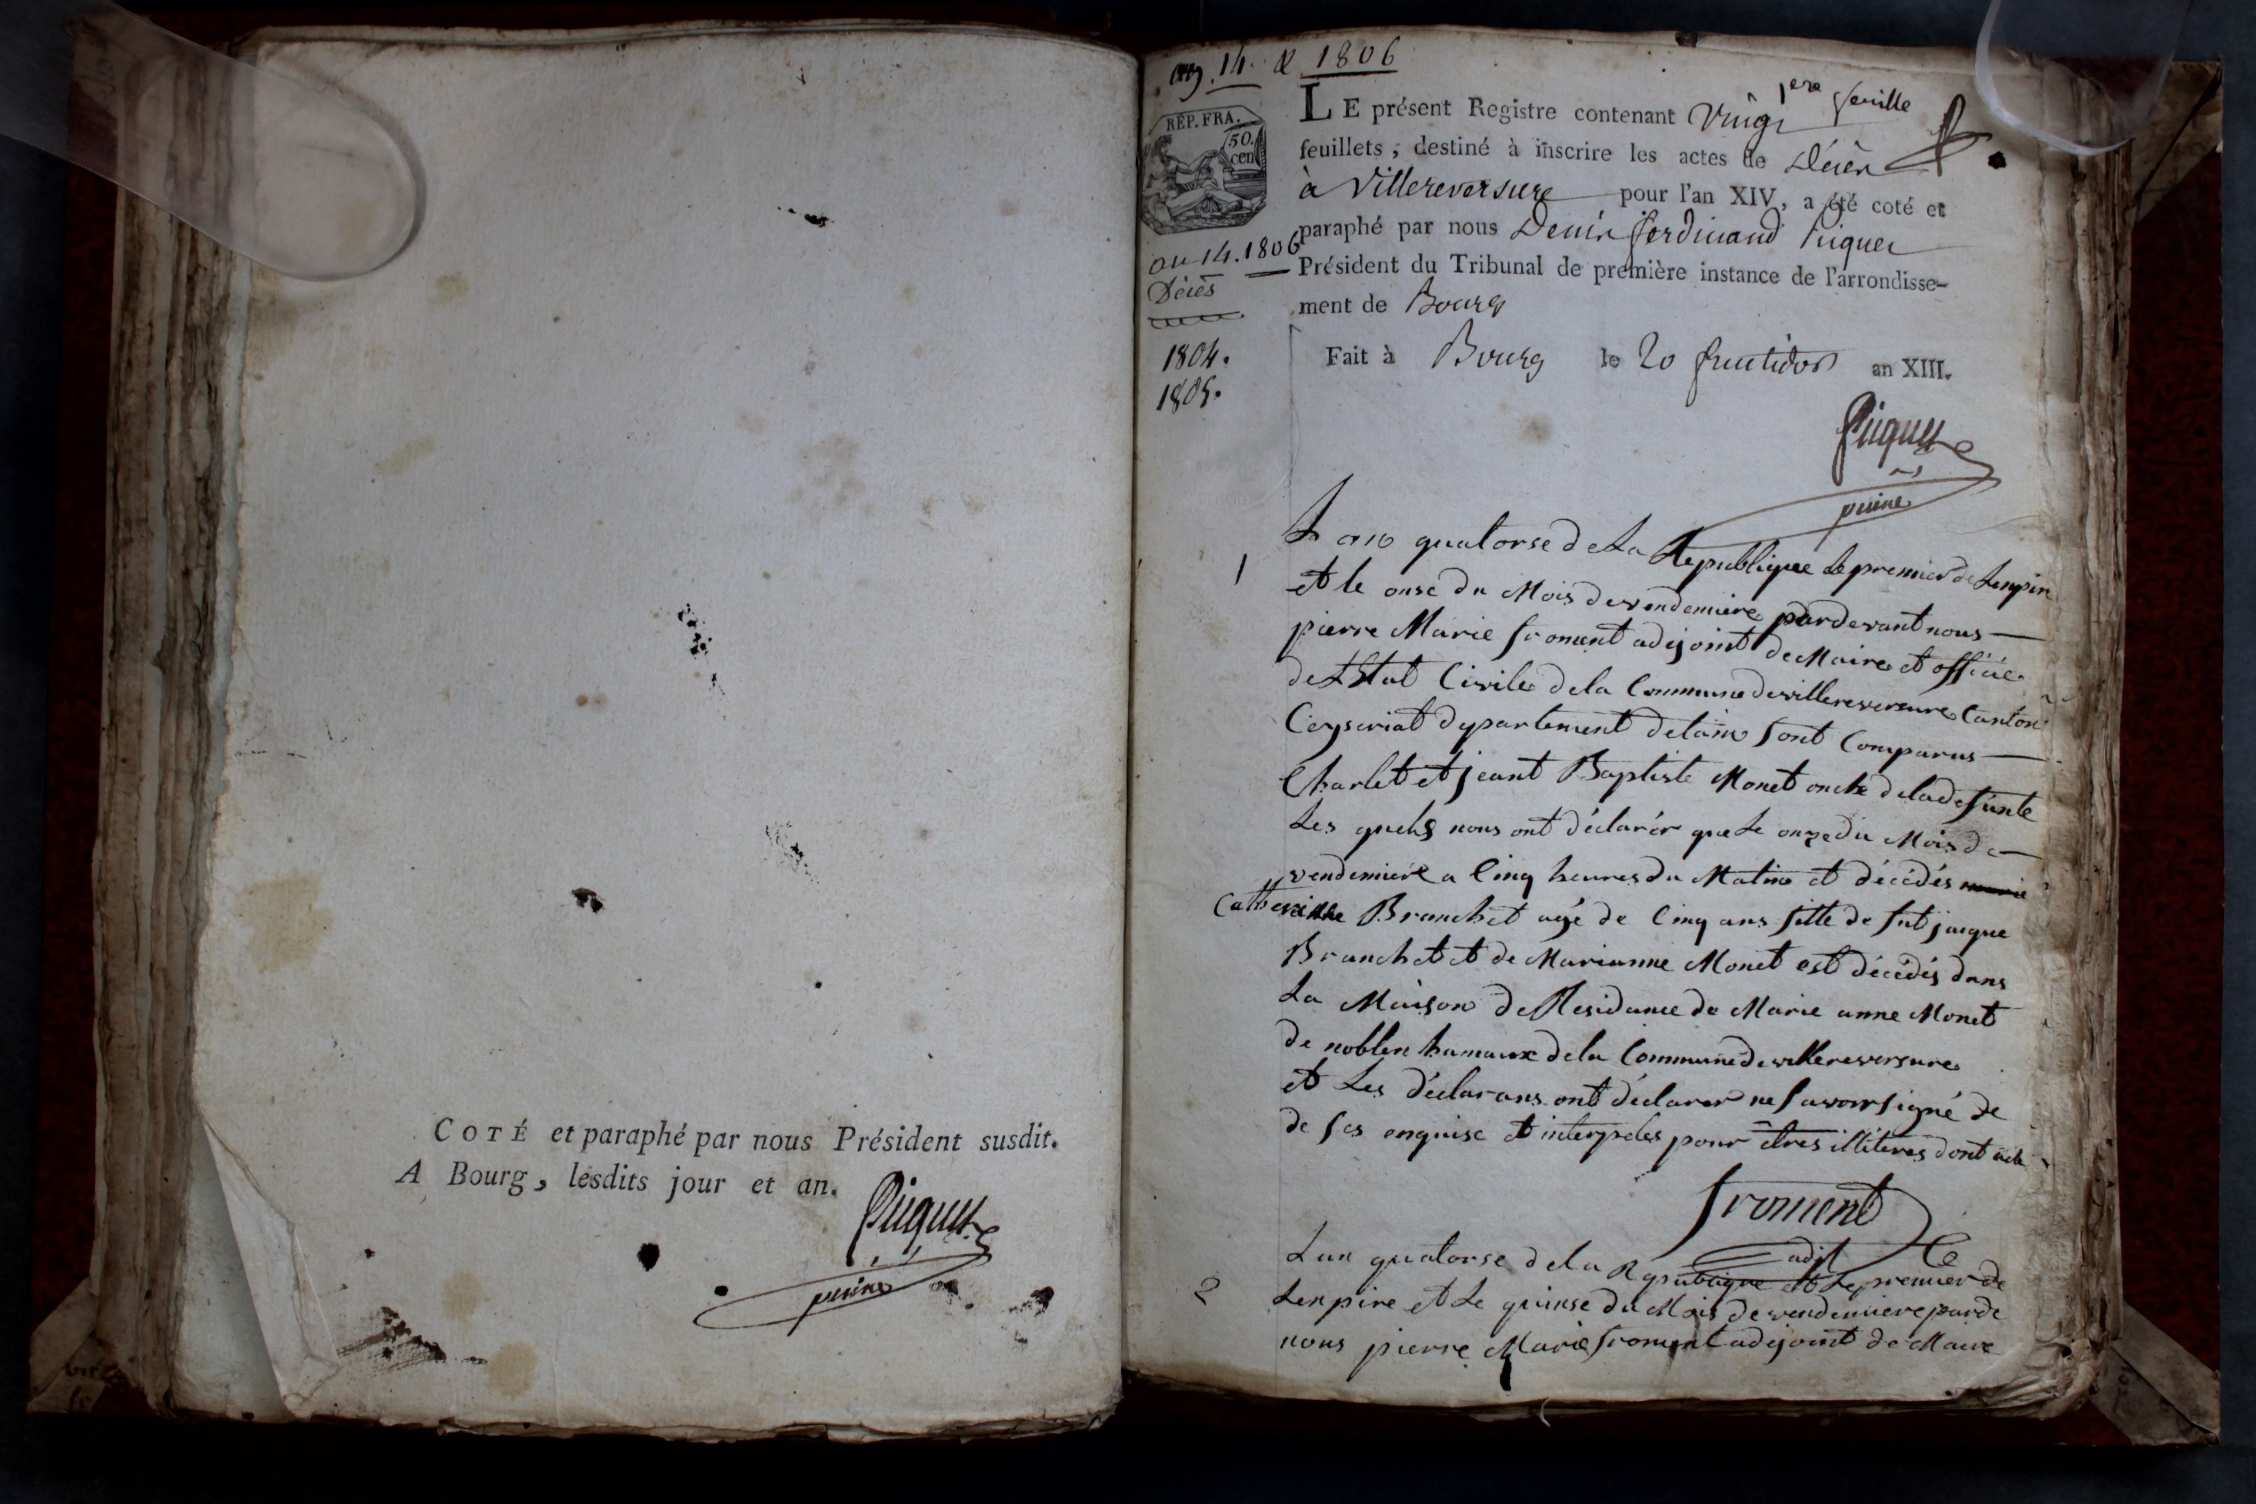 COTÉ et paraphé par nous Président susdit.
A Bourg, lesdits jour et an.
Picquet
an 14. & 1806
1ere feuille
RÉP. FRA.
50.
cen
an 14. 1806
Décès
1804.
1805.
LE présent Registre contenant Vingt
feuillets, destiné à inscrire les actes de Décès
à Villereversure pour l'an XIV, a été coté et
paraphé par nous Denis ferdinand Picquet
Président du Tribunal de première instance de l'arrondisse-
ment de Bourg
Fait à Bourg le 20 fructidor an XIII.
Picquet
1
L an quatorse de La Republique Le premier de Lenpire
et le onse du Mois de vendemiere pardevant nous
pierre Marie froment adejoint de Maire et officié
de LEtat Civile de la Commune de villereversure Canton
Ceyseriat dypartement de lain sont Comparus
Charlet et jeant Baptiste Monet oncle de la defunte
Les quels nous ont déclarér que Le onze du Mois de
vendemiere a Cinq heures du Matin et décédés marie
Catherine Branchet agé de Cinq ans fille de fut jacque
Branchet et de Marianne Monet est décédés dans
La Maison de Residance de Marie anne Monet
de noblen hamaux de la Commune de villereversure
et Les déclarans ont déclarer ne savoir signé de
de ses enquise et interpelés pour êtres illiteres dont acte
froment
adjt
2
Lan quatorse de la Republique et Le premier de
Lenpire et Le quinse du Mois de vendemiere parde
nous pierre Marie froment adejoint de Maire